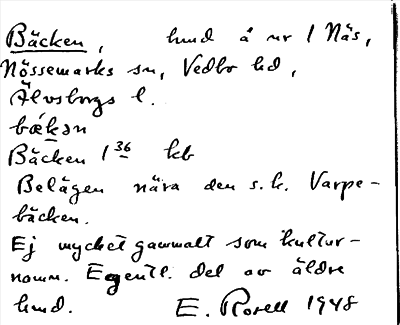 Bäcken, hmd å nr 1 Näs,
Nössemarks sn, Vedbo hd,
Älvsborgs l.
bækən
Bäcken 1 36 kb
Belägen nära den s.k. Varpe-
bäcken.
Ej mycket gammalt som kultur-
namn. Egentl. del av äldre
hmd. E. Rosell 1948